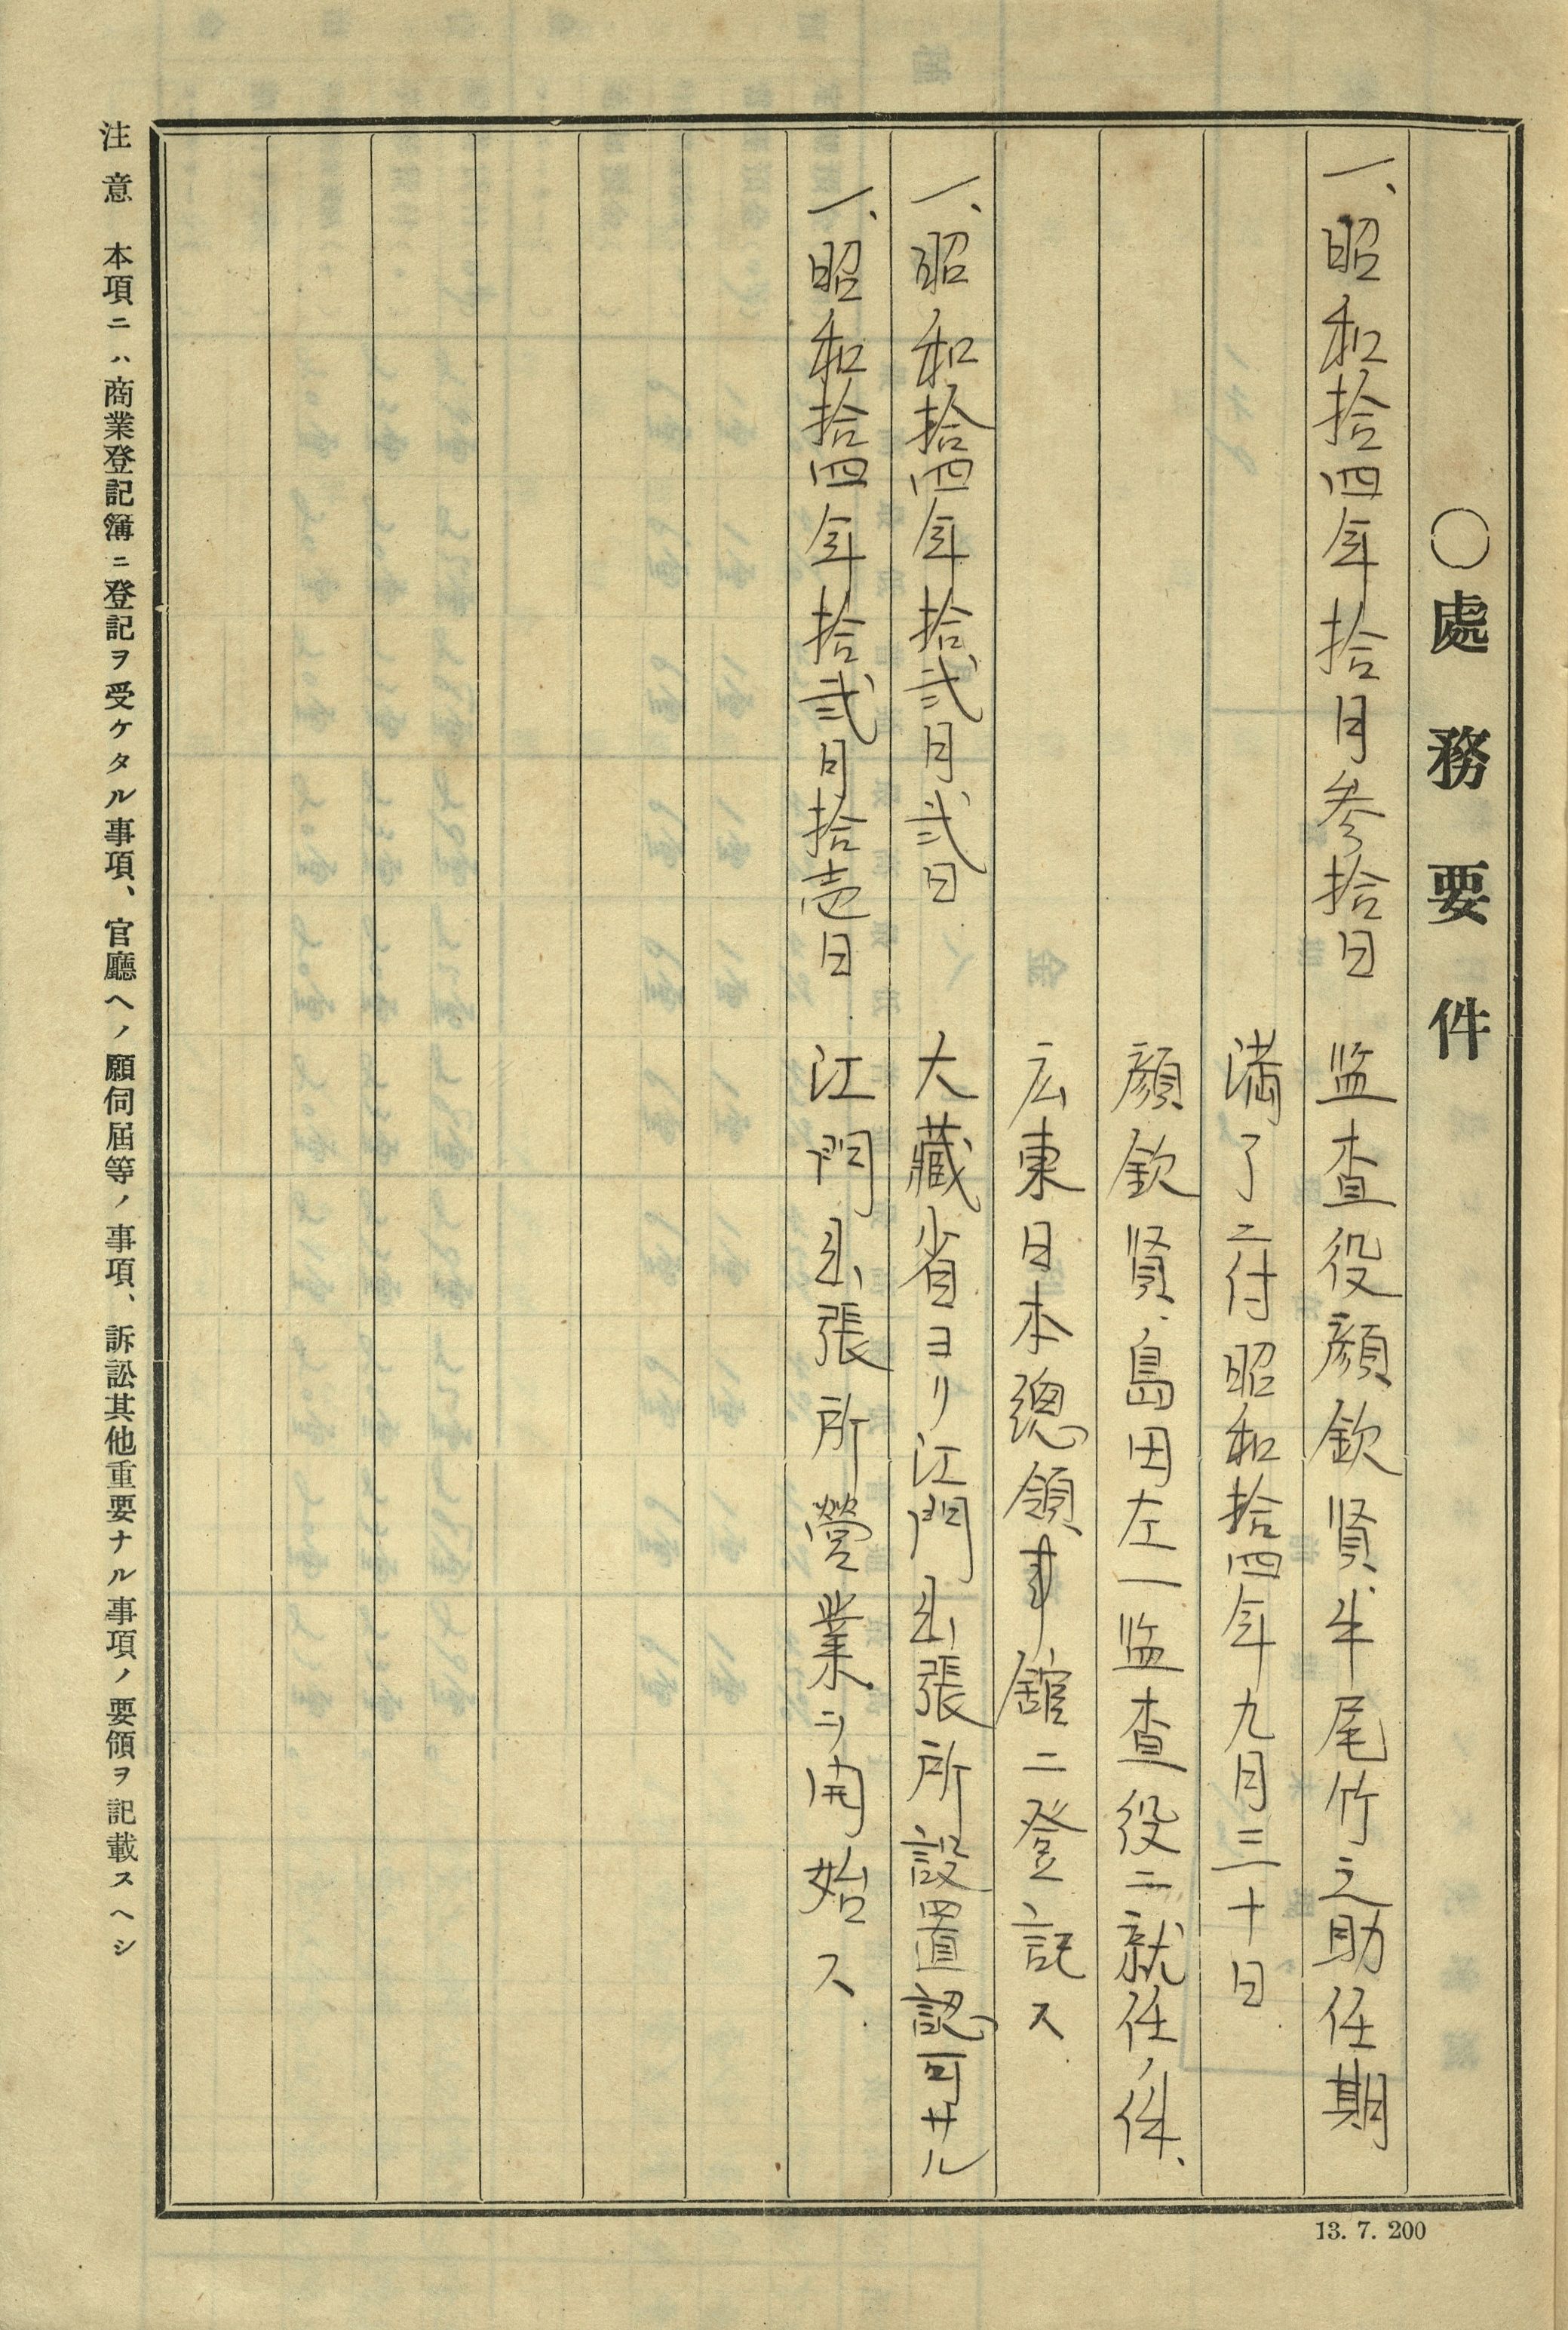 〇處務要件
一、昭和拾四年拾月参拾日 监査役顔欽賢半尾竹之助任期
満了ニ付昭和拾四年九月三十日
顔欽賢、島田左一监査役ニ就任ノ件、
広東日本總領事舘ニ登記ス
一、昭和拾四年拾弐月弐日 大藏省ヨリ江門出張所設置認可サル
一、昭和拾四年拾弐月拾壱日 江門出張所營業ヲ開始ス
注意 本項ニハ商業登記簿ニ登記ヲ受ケタル事項、官廳ヘノ願伺屆等ノ事項、訴訟其他重要ナル事項ノ要領ヲ記載スヘシ
13. 7. 200